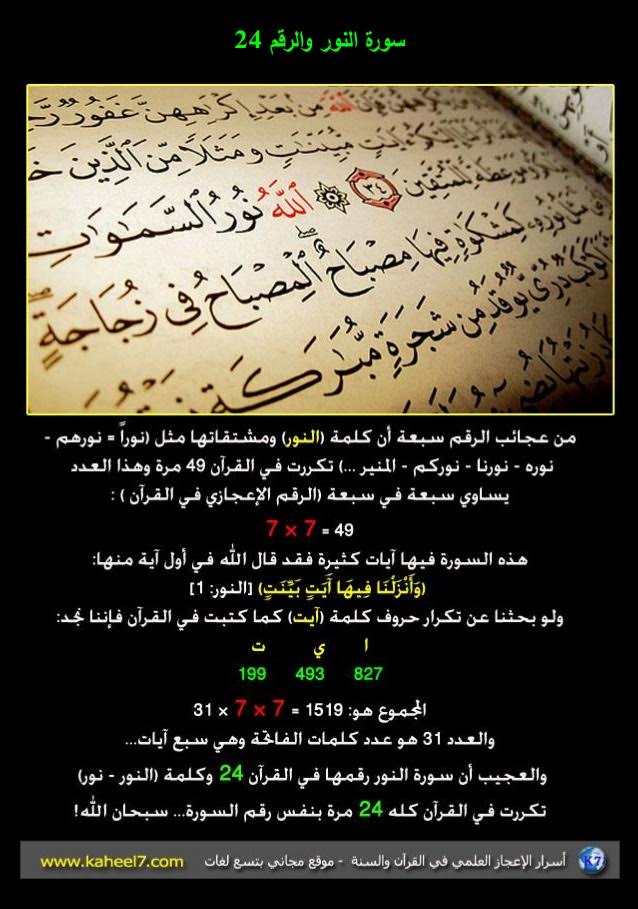 سورة النور والرقم 24
ٱللَّهَ مِنۢ بَعۡدِ إِكۡرَٰهِهِنَّ غَفُورٞ رَّح
ءَايَٰتٖ مُّبَيِّنَٰتٖ وَمَثَلٗا مِّنَ ٱلَّذِينَ خَ
وَمَوۡعِظَةٗ لِّلۡمُتَّقِينَ ٣٤ ۞ ٱللَّهُ نُورُ ٱلسَّمَٰوَٰتِ
مَثَلُ نُورِهِۦ كَمِشۡكَوٰةٖ فِيهَا مِصۡبَاحٌۖ ٱلۡمِصۡبَاحُ فِي زُجَاجَةٍۖ
كَوۡكَبٞ دُرِّيّٞ يُوقَدُ مِن شَجَرَةٖ مُّبَٰرَكَةٖ
من عجائب الرقم سبعة أن كلمة (النور) ومشتقاتها مثل (نوراً = نورهم -
نوره - نورنا - نوركم - المنير ...) تكررت في القرآن 49 مرة وهذا العدد
يساوي سبعة في سبعة (الرقم الإعجازي في القرآن ) :
49 = 7 × 7
هذه السورة فيها آيات كثيرة فقد قال الله في أول آية منها:
(وَأَنْزَلْنَا فِيهَا آَيَتٍ بَيِّنَتٍ) [النور: 1]
ولو بحثنا عن تكرار حروف كلمة (آيت) كما كتبت في القرآن فإننا نجد:
ا ي ت
827 493 199
المجموع هو: 1519 = 7 × 7 × 31
والعدد 31 هو عدد كلمات الفاتحة وهي سبع آيات...
والعجيب أن سورة النور رقمها في القرآن 24 وكلمة (النور - نور)
تكررت في القرآن كله 24 مرة بنفس رقم السورة... سبحان الله!
K7 أسرار الإعجاز العلمي في القرآن والسنة - موقع مجاني بتسع لغات www.kaheel7.com